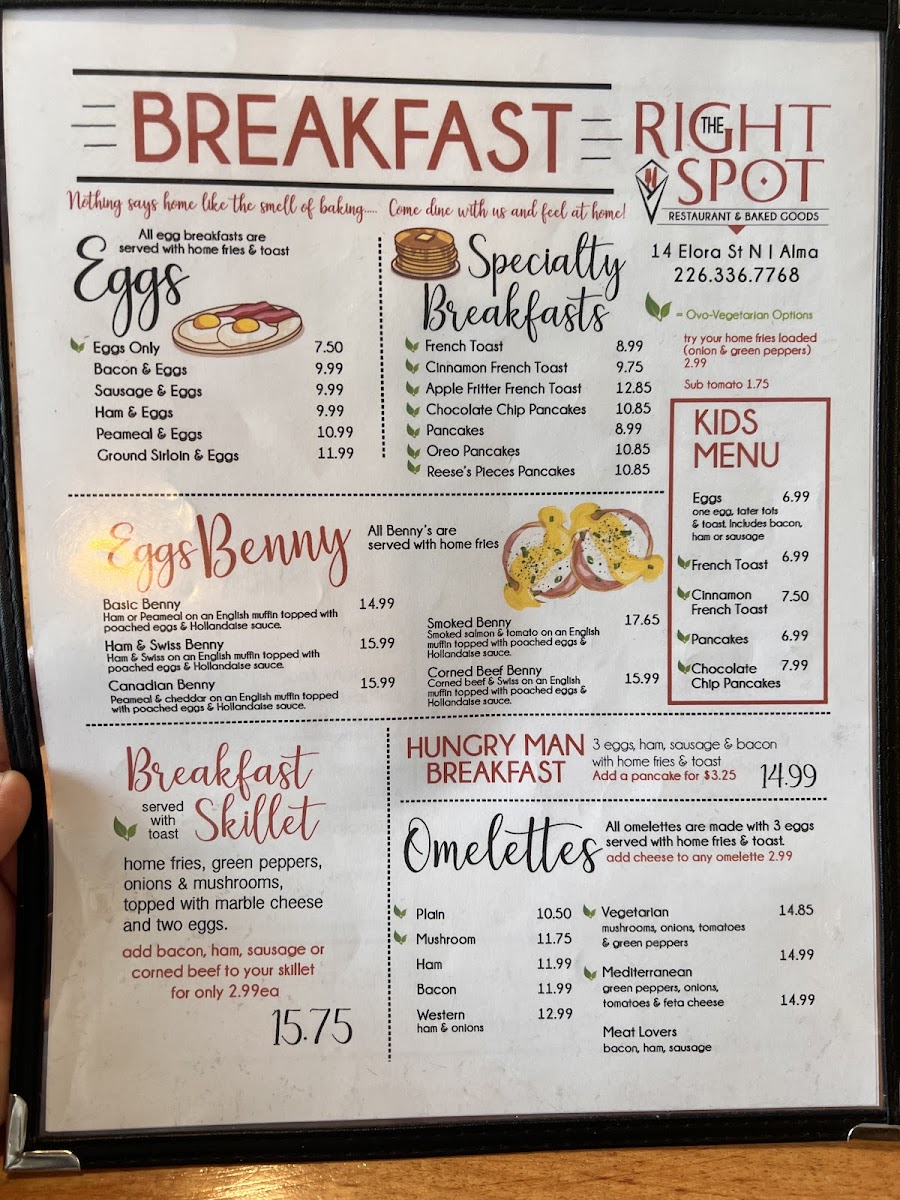 BREAKFAST
Nothing says home like the smell of baking..... Come dine with us and feel at home!
THE
RIGHT
SPOT
RESTAURANT & BAKED GOODS
14 Elora St N | Alma
226.336.7768
= Ovo-Vegetarian Options
try your home fries loaded
(onion & green peppers)
2.99
Sub tomato 1.75
Eggs
All egg breakfasts are
served with home fries & toast
Eggs Only 7.50
Bacon & Eggs 9.99
Sausage & Eggs 9.99
Ham & Eggs 9.99
Peameal & Eggs 10.99
Ground Sirloin & Eggs 11.99
Specialty
Breakfasts
French Toast 8.99
Cinnamon French Toast 9.75
Apple Fritter French Toast 12.85
Chocolate Chip Pancakes 10.85
Pancakes 8.99
Oreo Pancakes 10.85
Reese's Pieces Pancakes 10.85
KIDS
MENU
Eggs 6.99
one egg, tater tots
& toast. Includes bacon,
ham or sausage
French Toast 6.99
Cinnamon 7.50
French Toast
Pancakes 6.99
Chocolate 7.99
Chip Pancakes
Eggs Benny
All Benny's are
served with home fries
Basic Benny 14.99
Ham or Peameal on an English muffin topped with
poached eggs & Hollandaise sauce.
Ham & Swiss Benny 15.99
Ham & Swiss on an English muffin topped with
poached eggs & Hollandaise sauce.
Canadian Benny 15.99
Peameal & cheddar on an English muffin topped
with poached eggs & Hollandaise sauce.
Smoked Benny 17.65
Smoked salmon & tomato on an English
muffin topped with poached eggs &
Hollandaise sauce.
Corned Beef Benny 15.99
Corned beef & Swiss on an English
muffin topped with poached eggs &
Hollandaise sauce.
Breakfast
Skillet
served
with
toast
home fries, green peppers,
onions & mushrooms,
topped with marble cheese
and two eggs.
add bacon, ham, sausage or
corned beef to your skillet
for only 2.99ea
15.75
HUNGRY MAN
BREAKFAST
3 eggs, ham, sausage & bacon
with home fries & toast
Add a pancake for $3.25
14.99
Omelettes
All omelettes are made with 3 eggs
served with home fries & toast.
add cheese to any omelette 2.99
Plain 10.50
Mushroom 11.75
Ham 11.99
Bacon 11.99
Western 12.99
ham & onions
Vegetarian 14.85
mushrooms, onions, tomatoes
& green peppers
14.99
Mediterranean
green peppers, onions,
tomatoes & feta cheese 14.99
Meat Lovers
bacon, ham, sausage